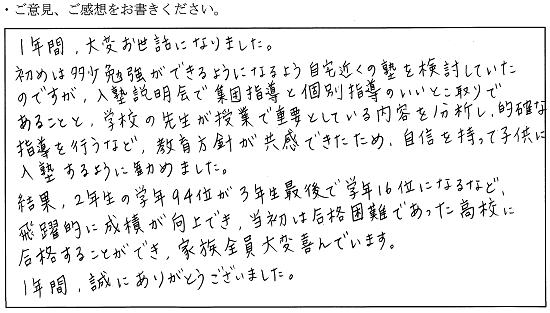 ・ご意見、ご感想をお書きください。
1年間，大変お世話になりました。
初めは多少勉強ができるようになるよう自宅近くの塾を検討していた
のですが，入塾説明会で集団指導と個別指導のいいとこ取りで
あることと、学校の先生が授業で重要としている内容を分析し，的確な
指導を行うなど，教育方針が共感できたため，自信を持って子供に
入塾するように勧めました。
結果，2年生の学年94位が3年生最後で学年16位になるなど，
飛躍的に成績が向上でき，当初は合格困難であった高校に
合格することができ，家族全員大変喜んでいます。
1年間，誠にありがとうございました。